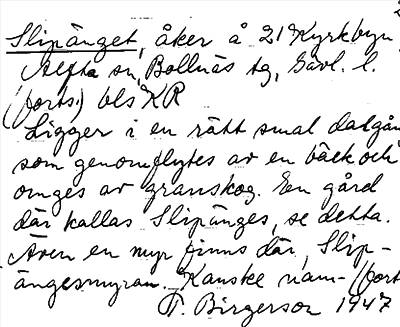 Slipänget, åker å 21 Kyrkbyn
Alfta sn, Bollnäs tg, Gävl. l.
(forts.) bls KR
Ligger i en rätt smal dalgån
som genomflytes av en bäck och
omges av granskog. En gård
där kallas Slipänges, se detta.
Även en myr finns där, Slip-
ängesmyran. Kanske nam- (fort
T. Birgerson 1947